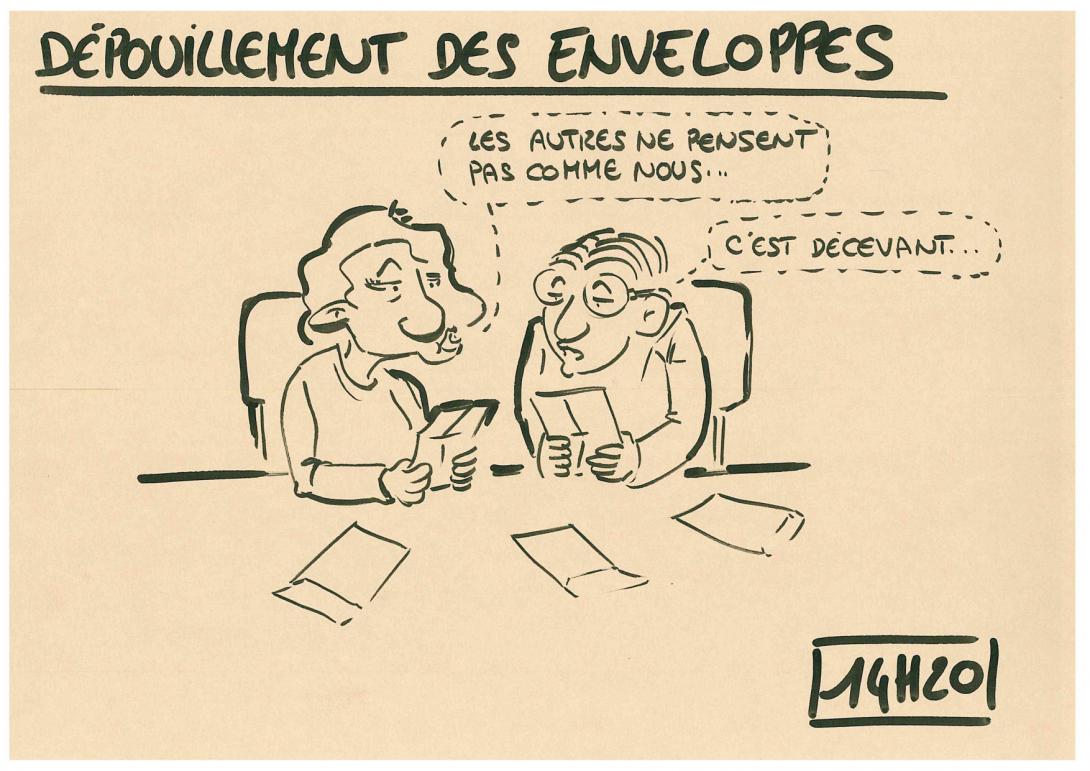 DÉPOUILLEMENT DES ENVELOPPES
LES AUTRES NE PENSENT
PAS COMME NOUS...
C'EST DÉCEVANT...
14H20